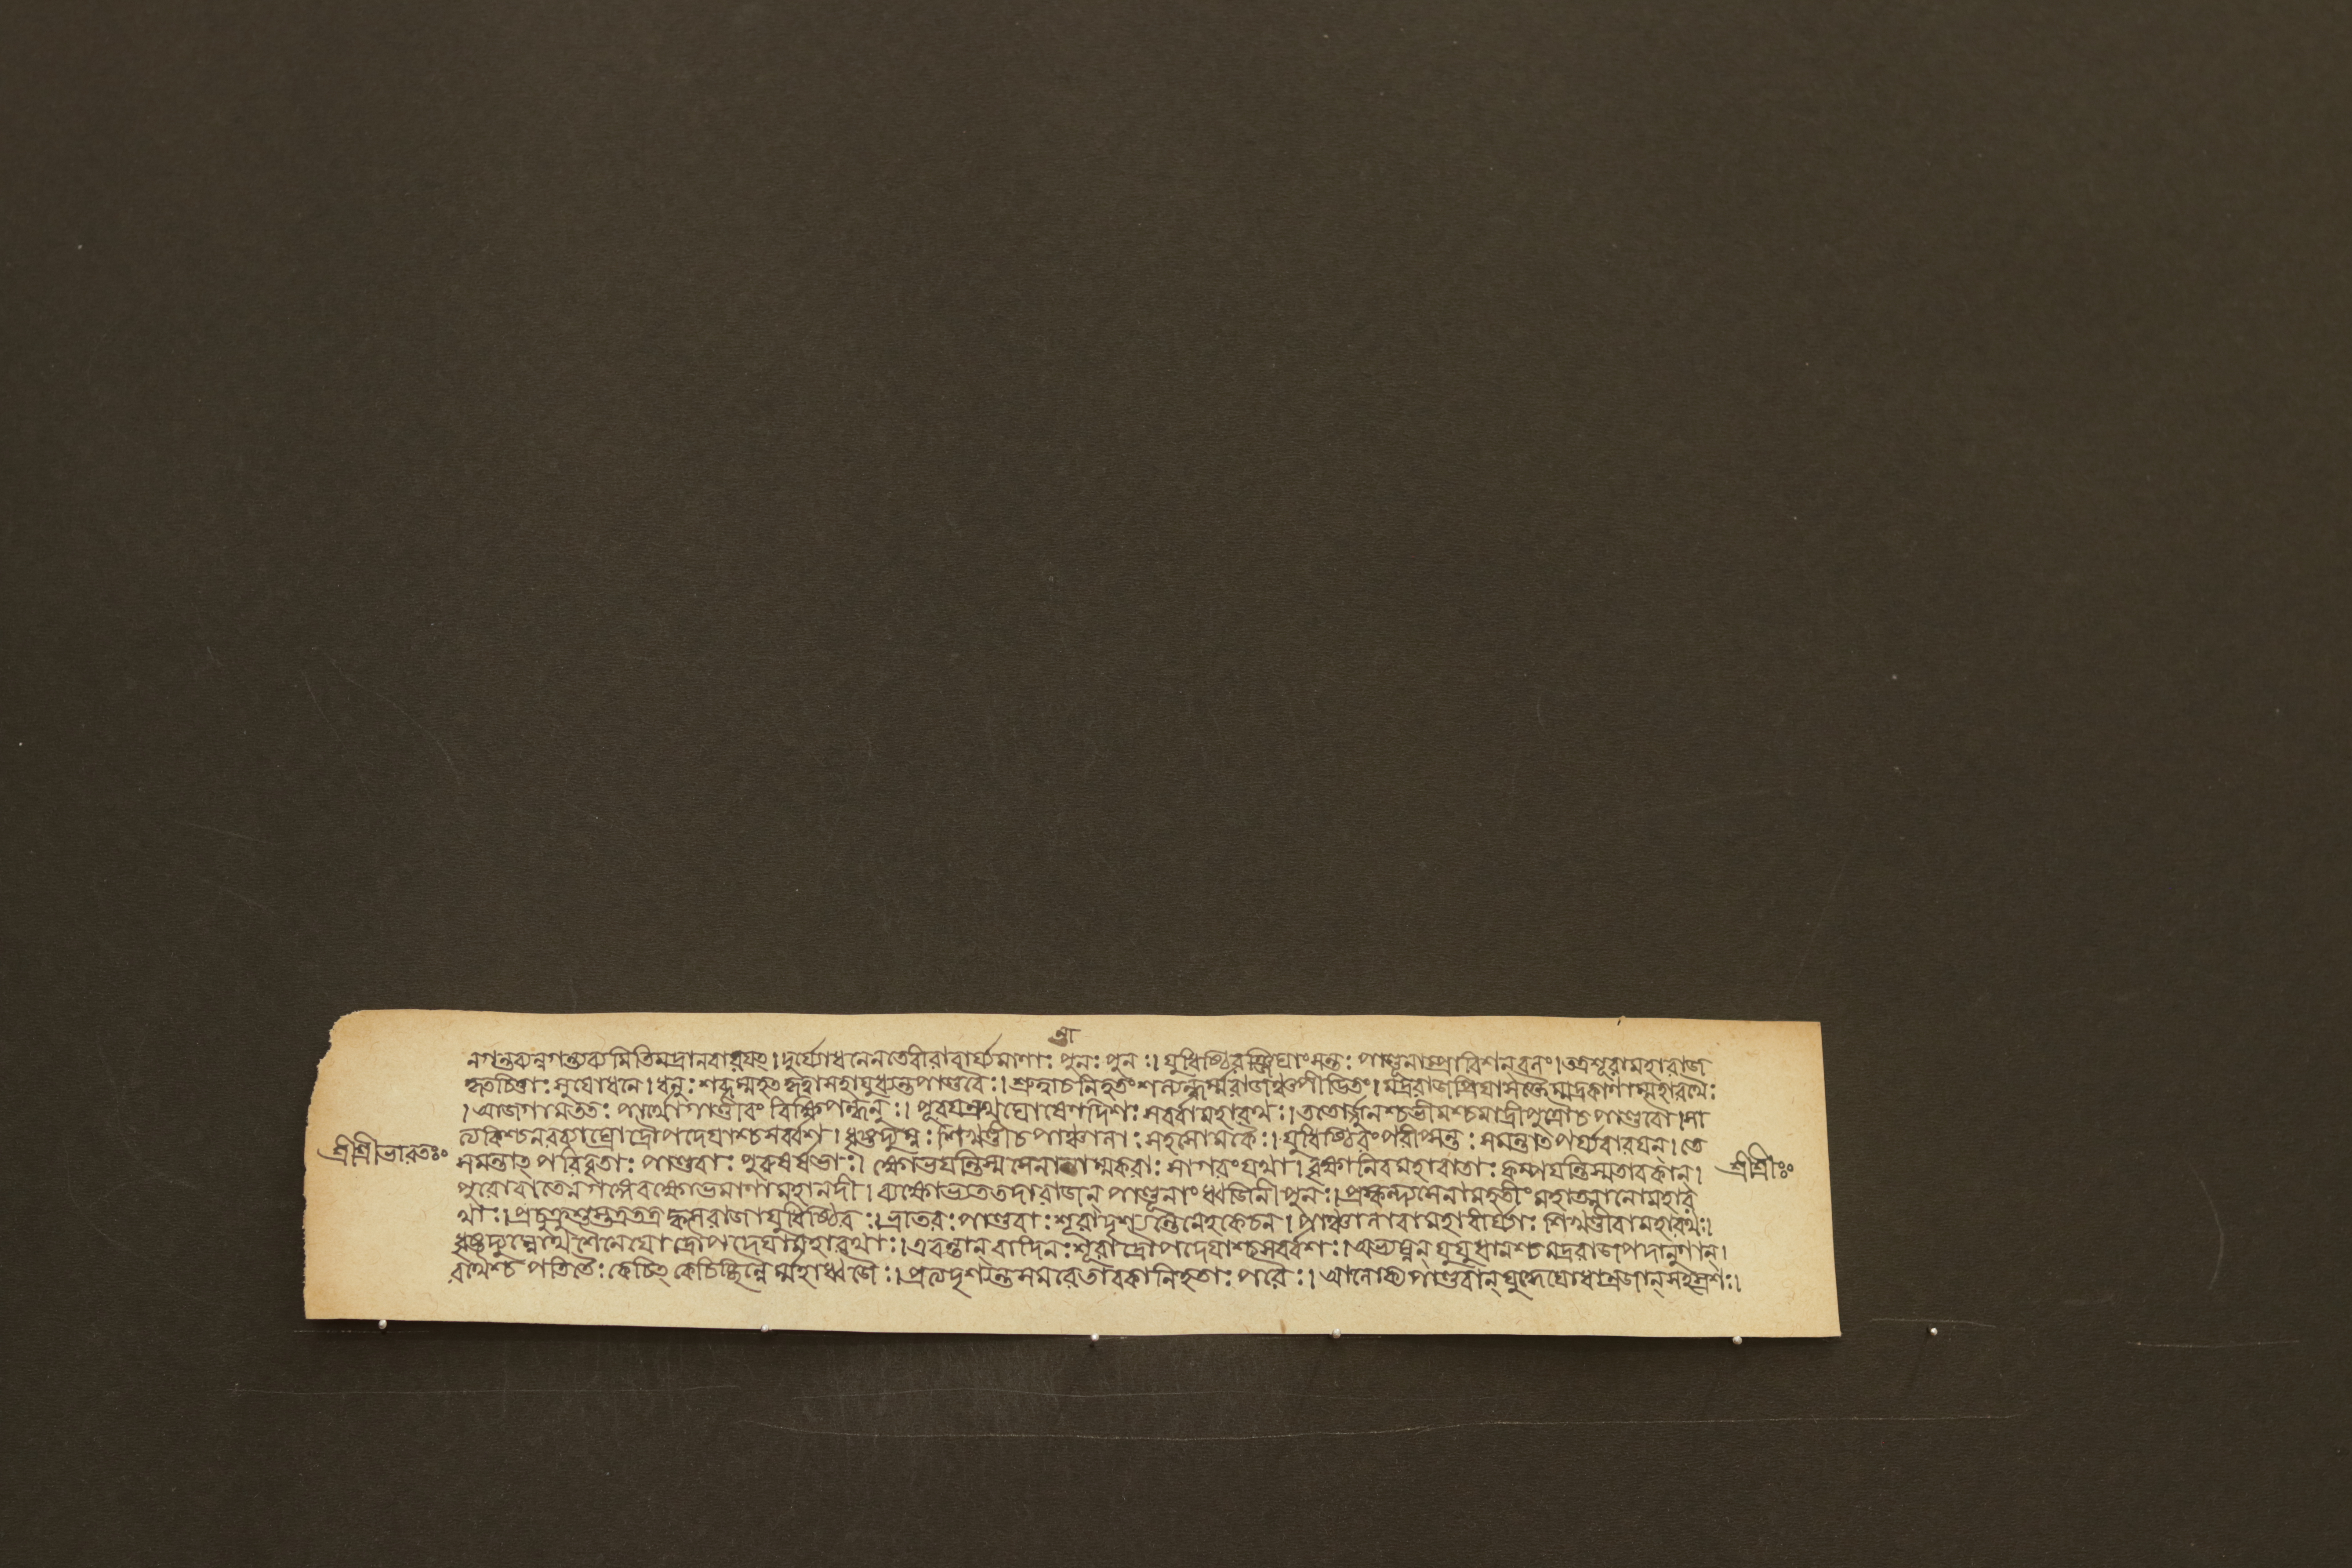 ত্রা
নগন্তব্যন্নগন্তব্যমিতিমদ্রানবারযৎ।দুর্য্যোধনেনতেবীরাবার্য্যমাণাঃ পুনঃ পুনঃ।যুধিষ্ঠিরঞ্জিঘাংসন্তঃ পাণ্ডূনাম্প্রাবিশন্বলং।তত্রশূরামহারাজ
কৃতচিত্তাঃ সুযোধনে।ধনুঃ শব্দম্মহৎ কৃত্বা সহাযুধ্যন্তপাণ্ডবৈঃ।শ্রুত্বাচনিহতংশল্যন্ধর্ম্মরাজঞ্চপীড়িতং।মদ্ররাজপ্রিযাসক্তৈর্ম্মদ্রকাণাম্মহারথৈঃ
।আজগামততঃ পার্থোগাণ্ডীবং বিক্ষিপন্ধনুঃ।পূরযন্রথঘোষেণদিশঃ সর্ব্বামহারথঃ।ততোর্জ্জুনশ্চভীমশ্চমাদ্রীপুত্রৌচপাণ্ডবৌ।সা
ত্যকিশ্চনরব্যাঘ্রোদ্রৌপদেযাশ্চসর্ব্বশঃ।ধৃষ্টদ্যুম্নঃ শিখণ্ডীচপাঞ্চালাঃ সহসোমকৈঃ।যুধিষ্ঠিরংপরীপ্সন্তঃ সমন্তাৎপর্য্যবারযন্।তে
শ্রীশ্রীভারতঃ
সমন্তাৎ পরিবৃতাঃ পাণ্ডবাঃ পুরুষর্ষভাঃ। ক্ষোভযন্তিস্মসেনান্তাম্মকরাঃ সাগরংযথা।বৃক্ষানিবমহাবাতাঃ কম্পযন্তিস্মতাবকান্।
শ্রীশ্রীঃ
পুরোবাতেনগঙ্গেবক্ষোভ্যমাণামহানদী।ব্যক্ষোভ্যততদারাজন্ পাণ্ডূনাং ধ্বজিনী পুনঃ।প্রস্কন্দ্যসেনাম্মহতীংমহাত্মানোমহার
থাঃ।প্রচুক্রুশুস্তত্রতত্রক্বসরাজাযুধিষ্ঠিরঃ।ভ্রাতরঃ পাণ্ডবাঃ শূরাদৃশ্যন্তেনেহকেচন।পাঞ্চালাবামহাবীর্য্যাঃ শিখণ্ডীবামহারথঃ।
ধৃষ্টদ্যুম্নোথশৈনেযোদ্রৌপদেযামহারথাঃ।এবন্তান্ বাদিনঃ শূরাদ্রৌপদেযাশ্চসর্ব্বশঃ।অভ্যঘ্নন্ যুযুধানশ্চমদ্ররাজপদানুগান্।
রথৈশ্চ পতিতৈঃ কেচিৎ কেচিচ্ছিন্নৈর্ম্মহাধ্বজৈঃ।প্রত্যদৃশ্যন্তসমরেতাবকানিহতাঃ পরৈঃ। আলোক্যপাণ্ডবান্ যুদ্ধেযোধাব্রজান্ সহস্রশঃ।